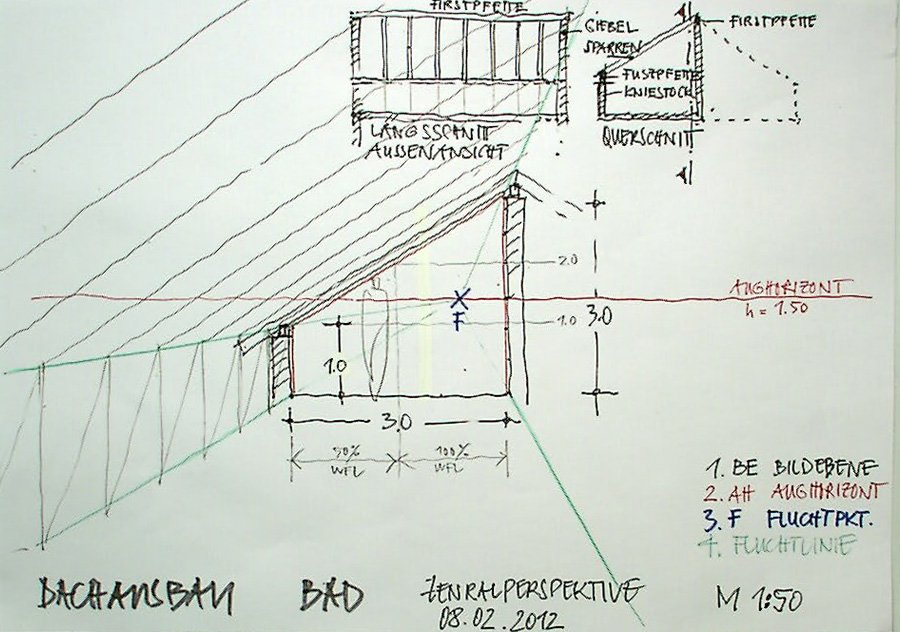 FIRSTPFETTE
GIEBEL
SPARREN
FIRSTPFETTE
FUSZPFETTE
KNIESTOCK
LÄNGSSCHNITT
AUSSENANSICHT
QUERSCHNITT
2.0
AUGHORIZONT
h = 1.50
F
1.0
3.0
1.0
3.0
50%
WFL
100%
WFL
1. BE BILDEBENE
2. AH AUGHORIZONT
3. F FLUCHTPKT.
4. FLUCHTLINIE
DACHAUSBAU BAD ZENRALPERSPEKTIVE M 1:50
08.02.2012